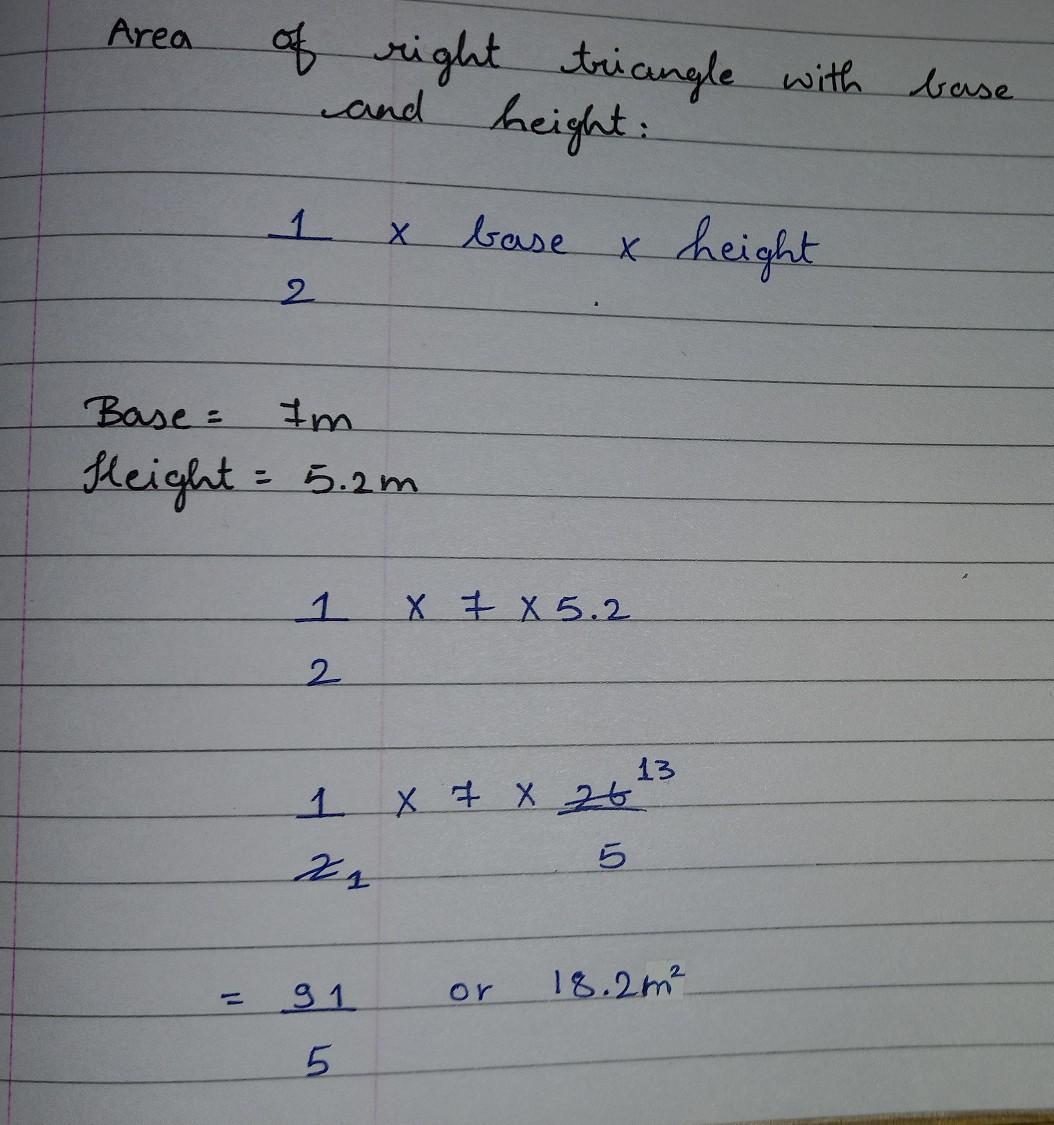 Area of right triangle with base
and height:
1/2 x base x height
Base = 7m
Height = 5.2m
1/2 x 7 x 5.2
1/2 1 x 7 x 26/5 13
= 91/5 or 18.2m²